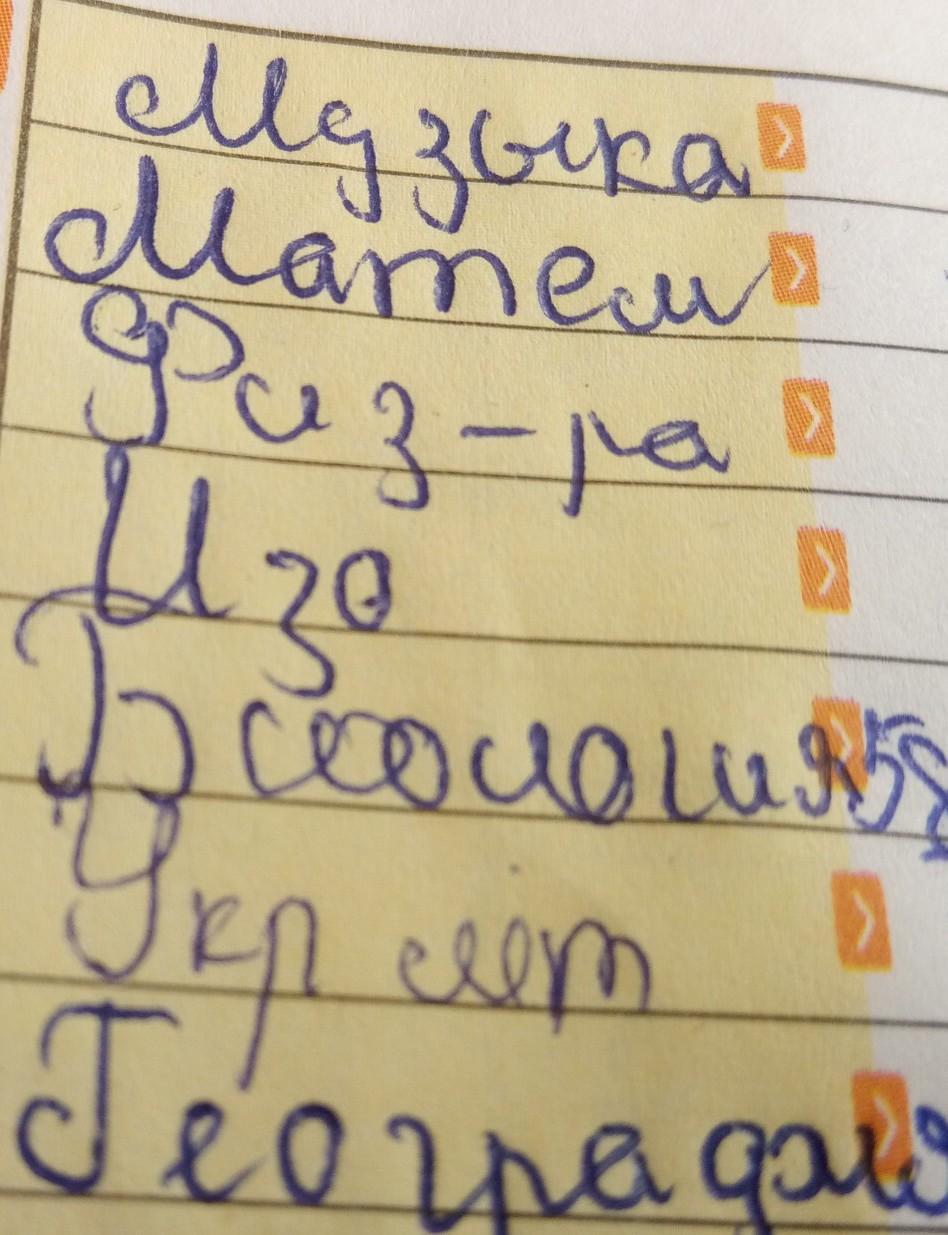 Музыка
Матем
Физ-ра
Изо
Биология
Укр лит
География